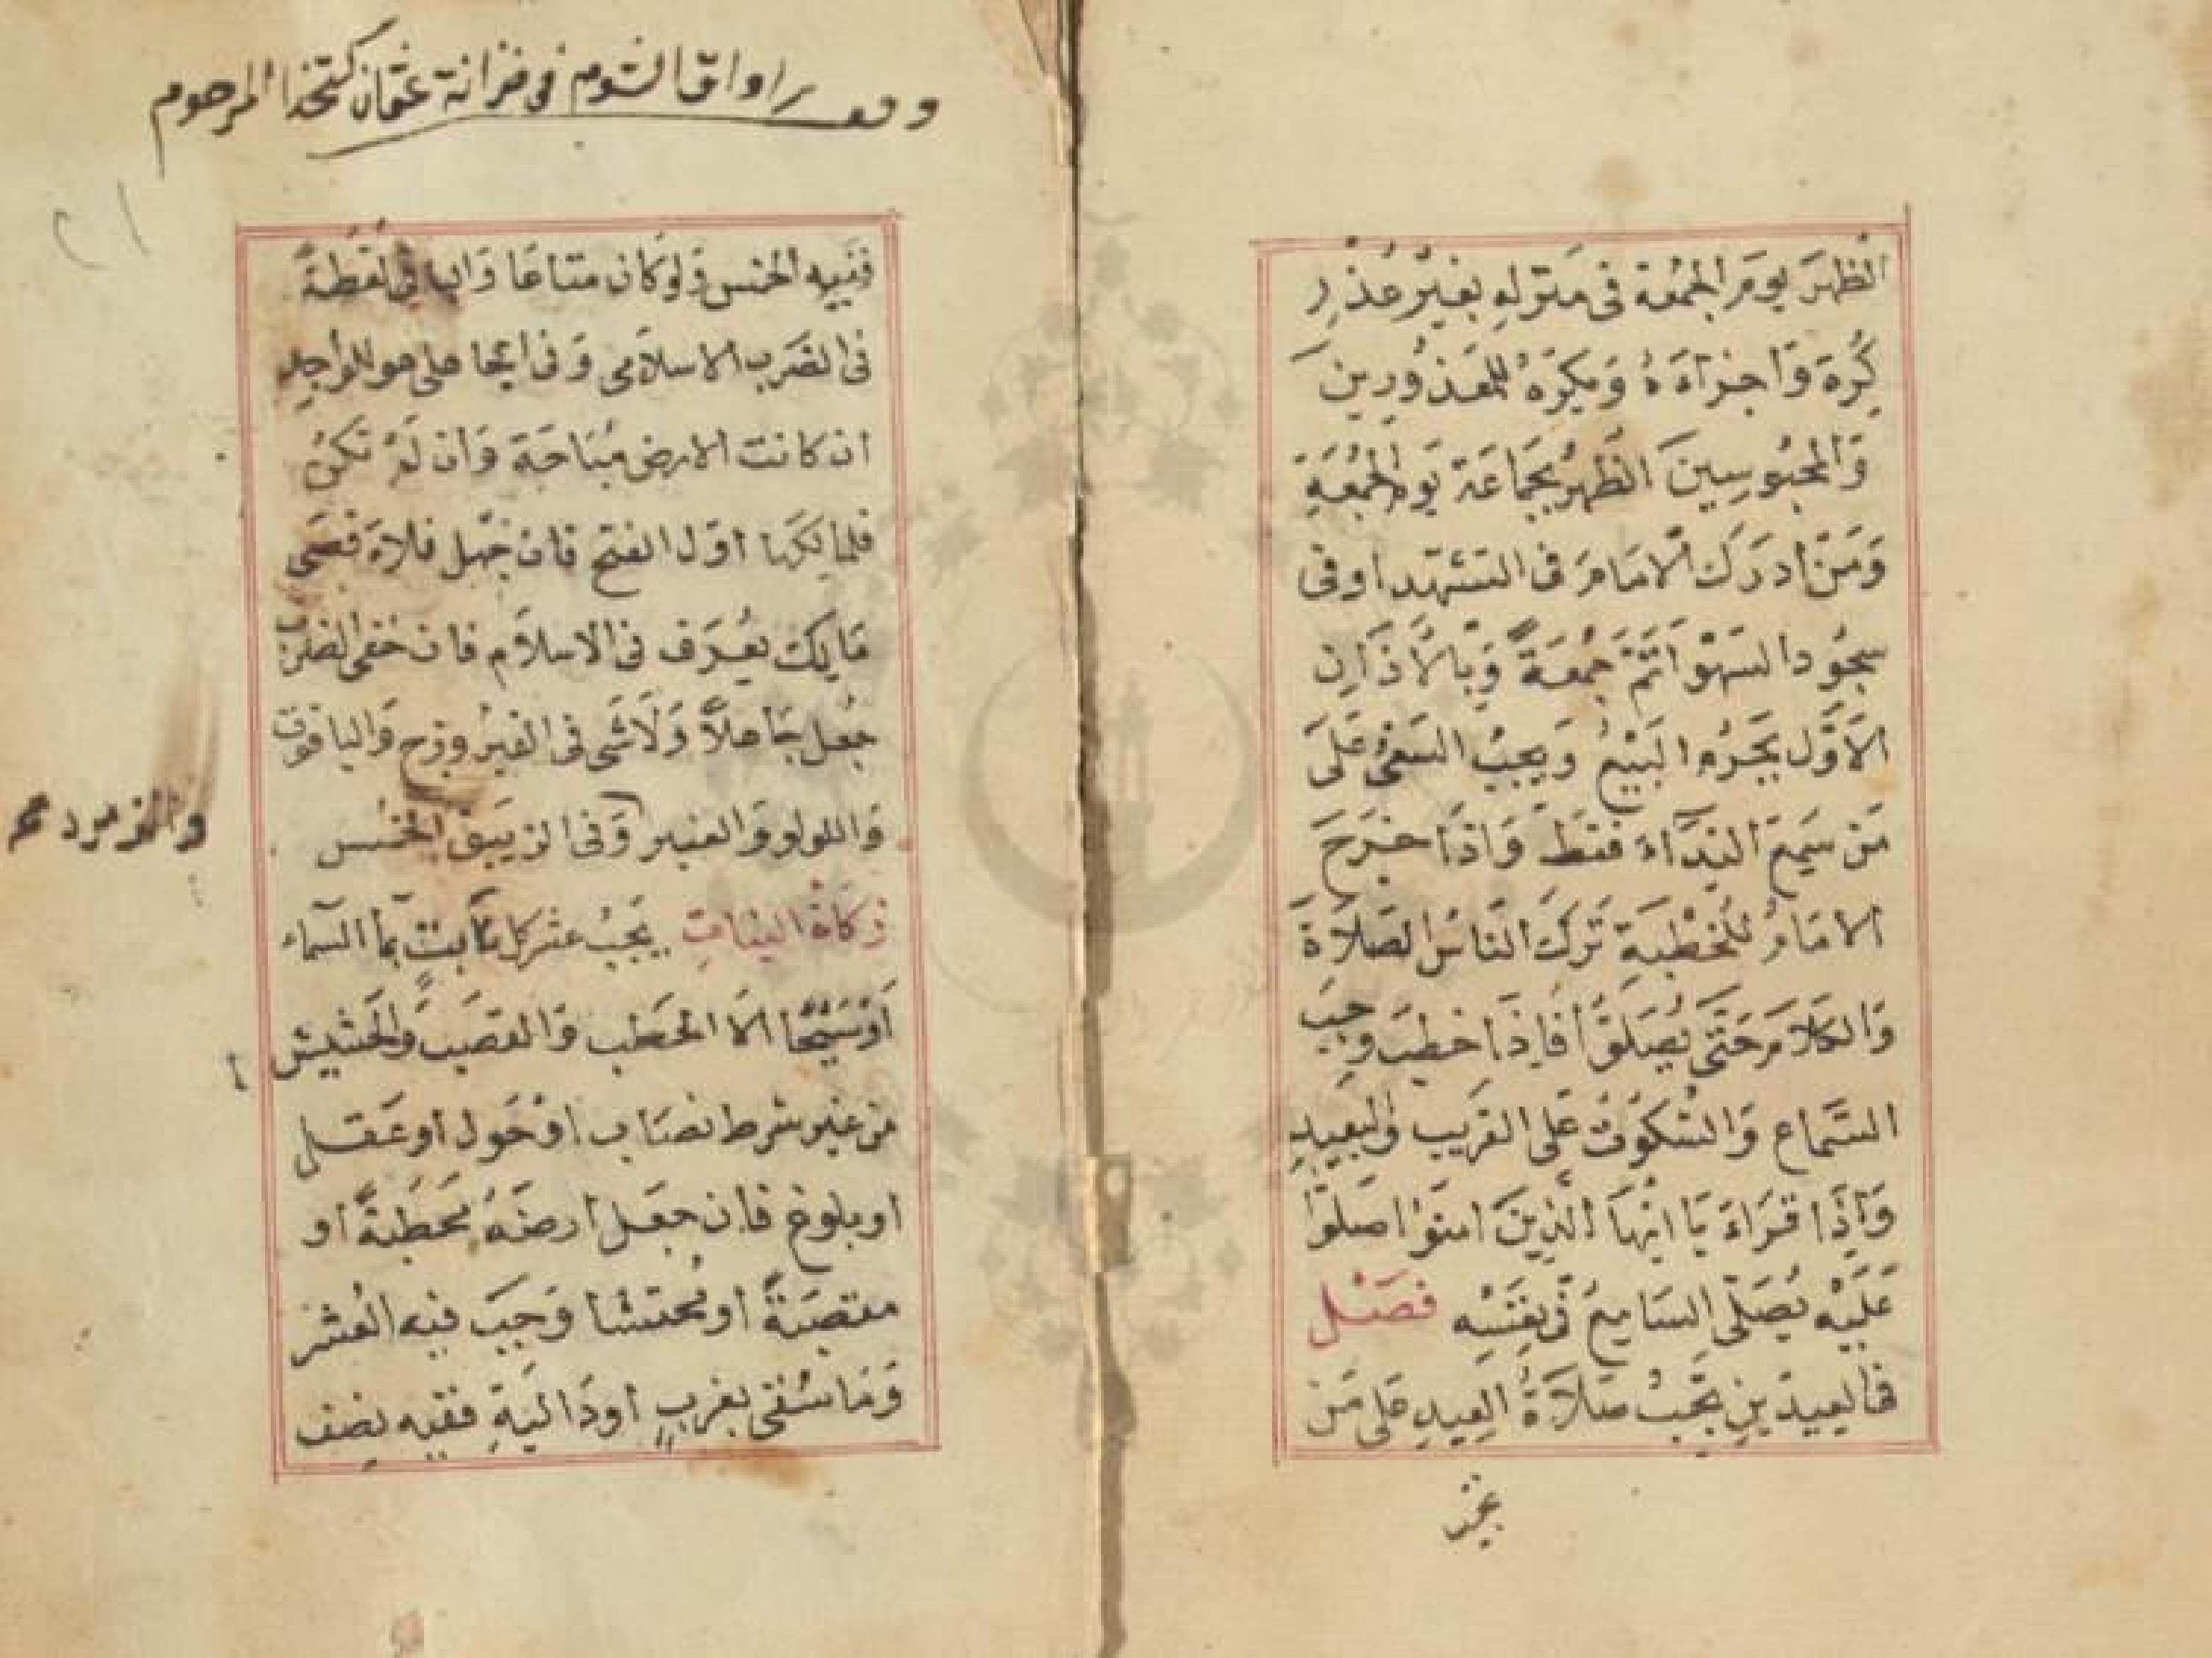 الظُهرَ يومَ الجمُعة فى مَنزلِهِ بغيرْ عُذرِ
كُرِهَ وَاجزاَءَهُ وَيكرَهُ للمَعذوُرِينَ
وَالمحبُوسِينَ الظُهرُ بجمَاعَة يَوم الجمُعَةِ
وَمَنْ ادرَكَ الامَامَ فى التشهّد اوفى
سجُود السَهْو اَتَمَّ جمُعَةً وَبالأذَانِ
الاَوَّل يحَرُم البَيْعُ وَيجبُ السَعْىُ عَلىَ
مَن سَمِعَ النِدَآءَ فقطَ وَاذَا خرَجَ
الامَامُ للخُطْبَةِ تَرَكَ النَاسُ الصَلاَةَ
وَالكَلاَمَ حَتّى يُصَلوَّا فَاِذَا خطبَ وَجبَ
السَّماع وَالسُكوُت عَلى القرَيب وَالبَعِيدِ
وَاِذَا قَراَءَ يَا ايُّهَا الَّذِينَ امنَوُا صَلوُّا
عَليَْه يُصَلّى السَامِعُ فى نفَسِْه فصَْل
فى العِيدَينِ تجَبُ صَلاَةُ العِيدِ عَلى مَنْ
وقف راواق الشوم فى خزانة عثمان كتخدا المرحوم
٢١
ففِيه الخمس وَلوَكان متاعًا وَالباقى لقطَةً
فى الضَرب الاسلاَمى وَفى الجاهلى هو للوَاجِدِ
ان كانت الارض مُبَاحَة وَان لَمْ تَكنُ
فلمالِكهَا اوّل الفتح فان جُهل فلاَقصَى
مَالِك يعُرَف فى الاسلاَم فان خفى الضرب
جعُل جَاهلاً وَلاَشَى فى الفيرُوزج وَالياقوت
وَاللولو وَالعنبر وَفى الزيبَق الخمُس
والزمرد صح
زكَاة النبات يجَبُ عشركل نَابتٍ بمَا السَماء
اَوْسَيْحًا الاَ الحطَب وَالقصَب وَالحَشيش
من غير شرط نصَاب اوْحَول اوعَقل
اوبلوغ فاِن جعَل ارضَهُ محَطَبةً او
مقصَبةً اومحُتشا وَجَبَ فيه العُشر
وَمَاسُقى بغربٍ اودَاليَةٍ ففيه نِصف